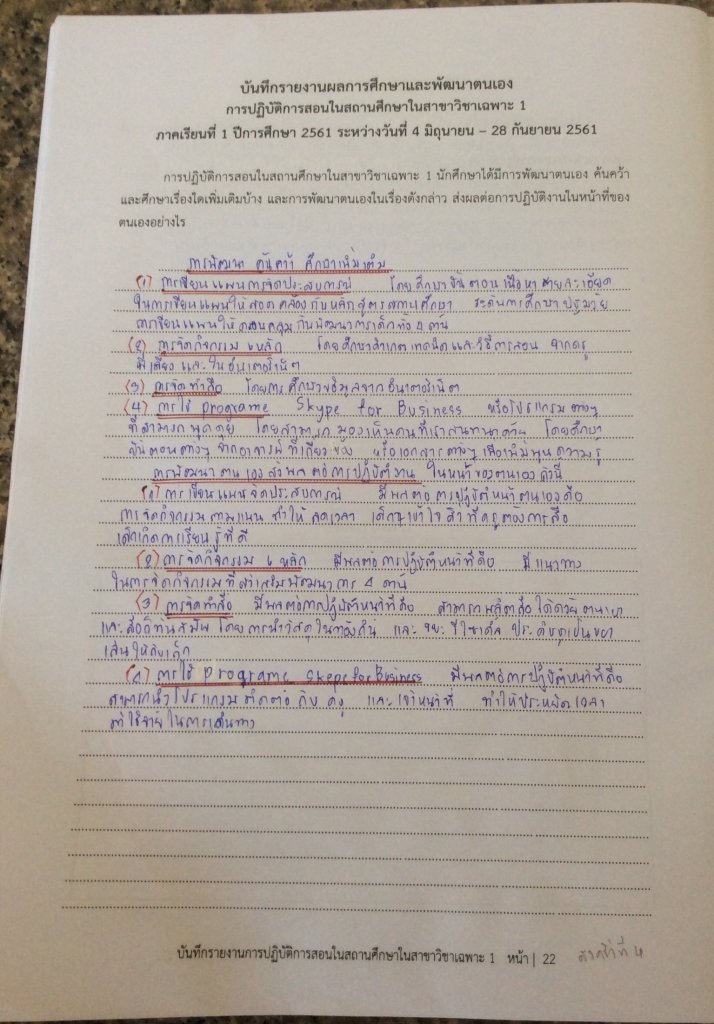 บันทึกรายงานผลการศึกษาและพัฒนาตนเอง
การปฏิบัติการสอนในสถานศึกษาในสาขาวิชาเฉพาะ 1
ภาคเรียนที่ 1 ปีการศึกษา 2561 ระหว่างวันที่ 4 มิถุนายน – 28 กันยายน 2561
การปฏิบัติการสอนในสถานศึกษาในสาขาวิชาเฉพาะ 1 นักศึกษาได้มีการพัฒนาตนเอง ค้นคว้า
และศึกษาเรื่องใดเพิ่มเติมบ้าง และการพัฒนาตนเองในเรื่องดังกล่าว ส่งผลต่อการปฏิบัติงานในหน้าที่ของ
ตนเองอย่างไร
การพัฒนา ค้นคว้า ศึกษาเพิ่มเติม
(1) การเขียนแผนการจัดประสบการณ์ โดยศึกษาขั้นตอนเนื้อหารายละเอียด
ในการเขียนแผนให้สอดคล้องกับหลักสูตรสถานศึกษา ระดับการศึกษาปฐมวัย
การเขียนแผนให้ครอบคลุมกับพัฒนาการเด็กทั้ง 4 ด้าน
(2) การจัดกิจกรรม 6 หลัก โดยศึกษาสังเกตเทคนิคและวิธีการสอน จากครู
พี่เลี้ยง และในอินเตอร์เน็ต
(3) การจัดทำสื่อ โดยการศึกษาข้อมูลจากอินเตอร์เน็ต
(4) การใช้ programe Skype for Business หรือโปรแกรมต่างๆ
ที่สามารถพูดคุย โดยสามารถมองเห็นคนที่เราสนทนาด้วย โดยศึกษา
ขั้นตอนต่างๆ จากอาจารย์ที่เกี่ยวข้อง หรือเอกสารต่างๆ เพื่อเพิ่มพูนความรู้
การพัฒนาตนเองส่งผลต่อการปฏิบัติงาน ในหน้าของตนเองดังนี้
(1) การเขียนแผนจัดประสบการณ์ มีผลต่อการปฏิบัติหน้าตนเองคือ
การจัดกิจกรรมตามแผน ทำให้ลดเวลา เด็กๆเข้าใจสิ่งที่ครูต้องการสื่อ
เด็กเกิดการเรียนรู้ที่ดี
(2) การจัดกิจกรรม 6 หลัก มีผลต่อการปฏิบัติหน้าที่คือ มีแนวทาง
ในการจัดกิจกรรมที่ส่งเสริมพัฒนาการ 4 ด้าน
(3) การจัดทำสื่อ มีผลต่อการปฏิบัติหน้าที่คือ สามารถผลิตสื่อได้ด้วยตนเอง
และสื่อก็ทันสมัย โดยการนำวัสดุในท้องถิ่น และ ขยะรีไซเคิล ประดิษฐ์เป็นของ
เล่นให้กับเด็ก
(4) การใช้ programe Skepe for Business มีผลต่อการปฏิบัติหน้าที่คือ
สามารถนำโปรแกรมติดต่อกับ ครู และเจ้าหน้าที่ ทำให้ประหยัดเวลา
ค่าใช้จ่ายในการเดินทาง
บันทึกรายงานการปฏิบัติการสอนในสถานศึกษาในสาขาวิชาเฉพาะ 1 หน้า | 22